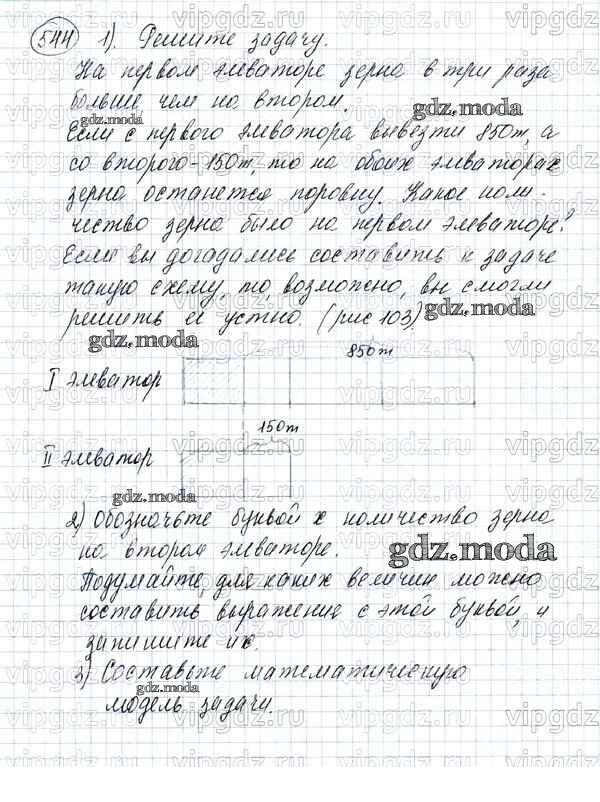 544 1). Решите задачу.
На первом элеваторе зерна в три раза
больше чем на втором.
Если с первого элеватора вывезти 850т, а
со второго - 150т, то на обоих элеваторах
зерна останется поровну. Какое коли-
чество зерна было на первом элеваторе?
Если вы догадались составить к задаче
такую схему, то, возможно, вы смогли
решить её устно. (рис 103)
850т
I элеватор
150т
II элеватор
2) Обозначьте буквой x количество зерна
на втором элеваторе.
Подумайте, для каких величин можно
составить выражение с этой буквой, и
запишите их.
3) Составьте математическую
модель задачи.
gdz.moda
gdz.moda
gdz.moda
gdz.moda
gdz.moda
gdz.moda
gdz.moda
vipgdz.ru